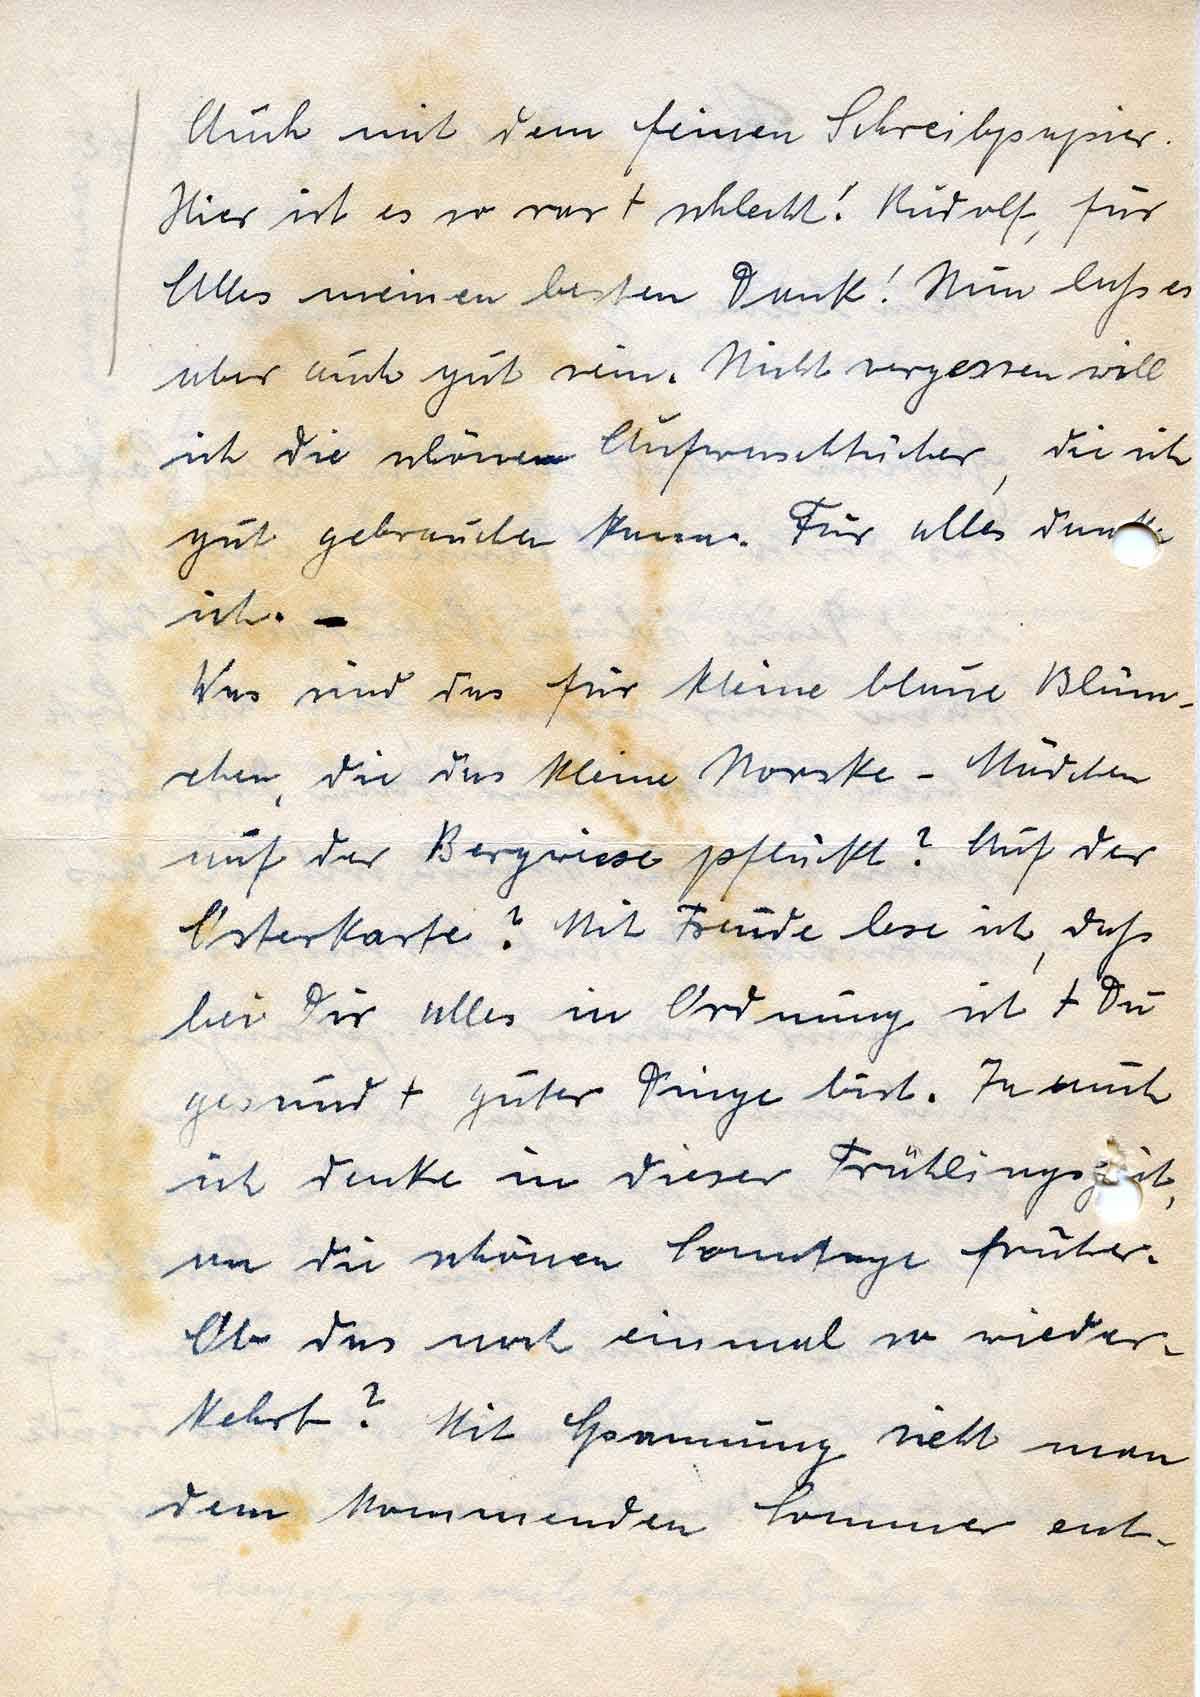 Auch mit dem feinen Schreibpapier.
Hier ist es so rar + schlecht! Rudolf, für
Alles meinen besten Dank! Nun laß es
aber auch gut sein. Nicht vergessen will
ich die schönen Aufwaschtücher, die ich
gut gebrauchen kann. Für alles danke
ich. –
Was sind das für kleine blaue Blüm-
chen, die das kleine Norske-Mädchen
auf der Bergwiese pflückt? Auf der
Osterkarte? Mit Freude lese ich, daß
bei Dir alles in Ordnung ist + Du
gesund + guter Dinge bist. Ja auch
ich denke in dieser Frühlingszeit,
an die schönen Sonntage früher.
Ob das noch einmal so wieder-
kehrt? Mit Spannung sieht man
dem kommenden Sommer ent-